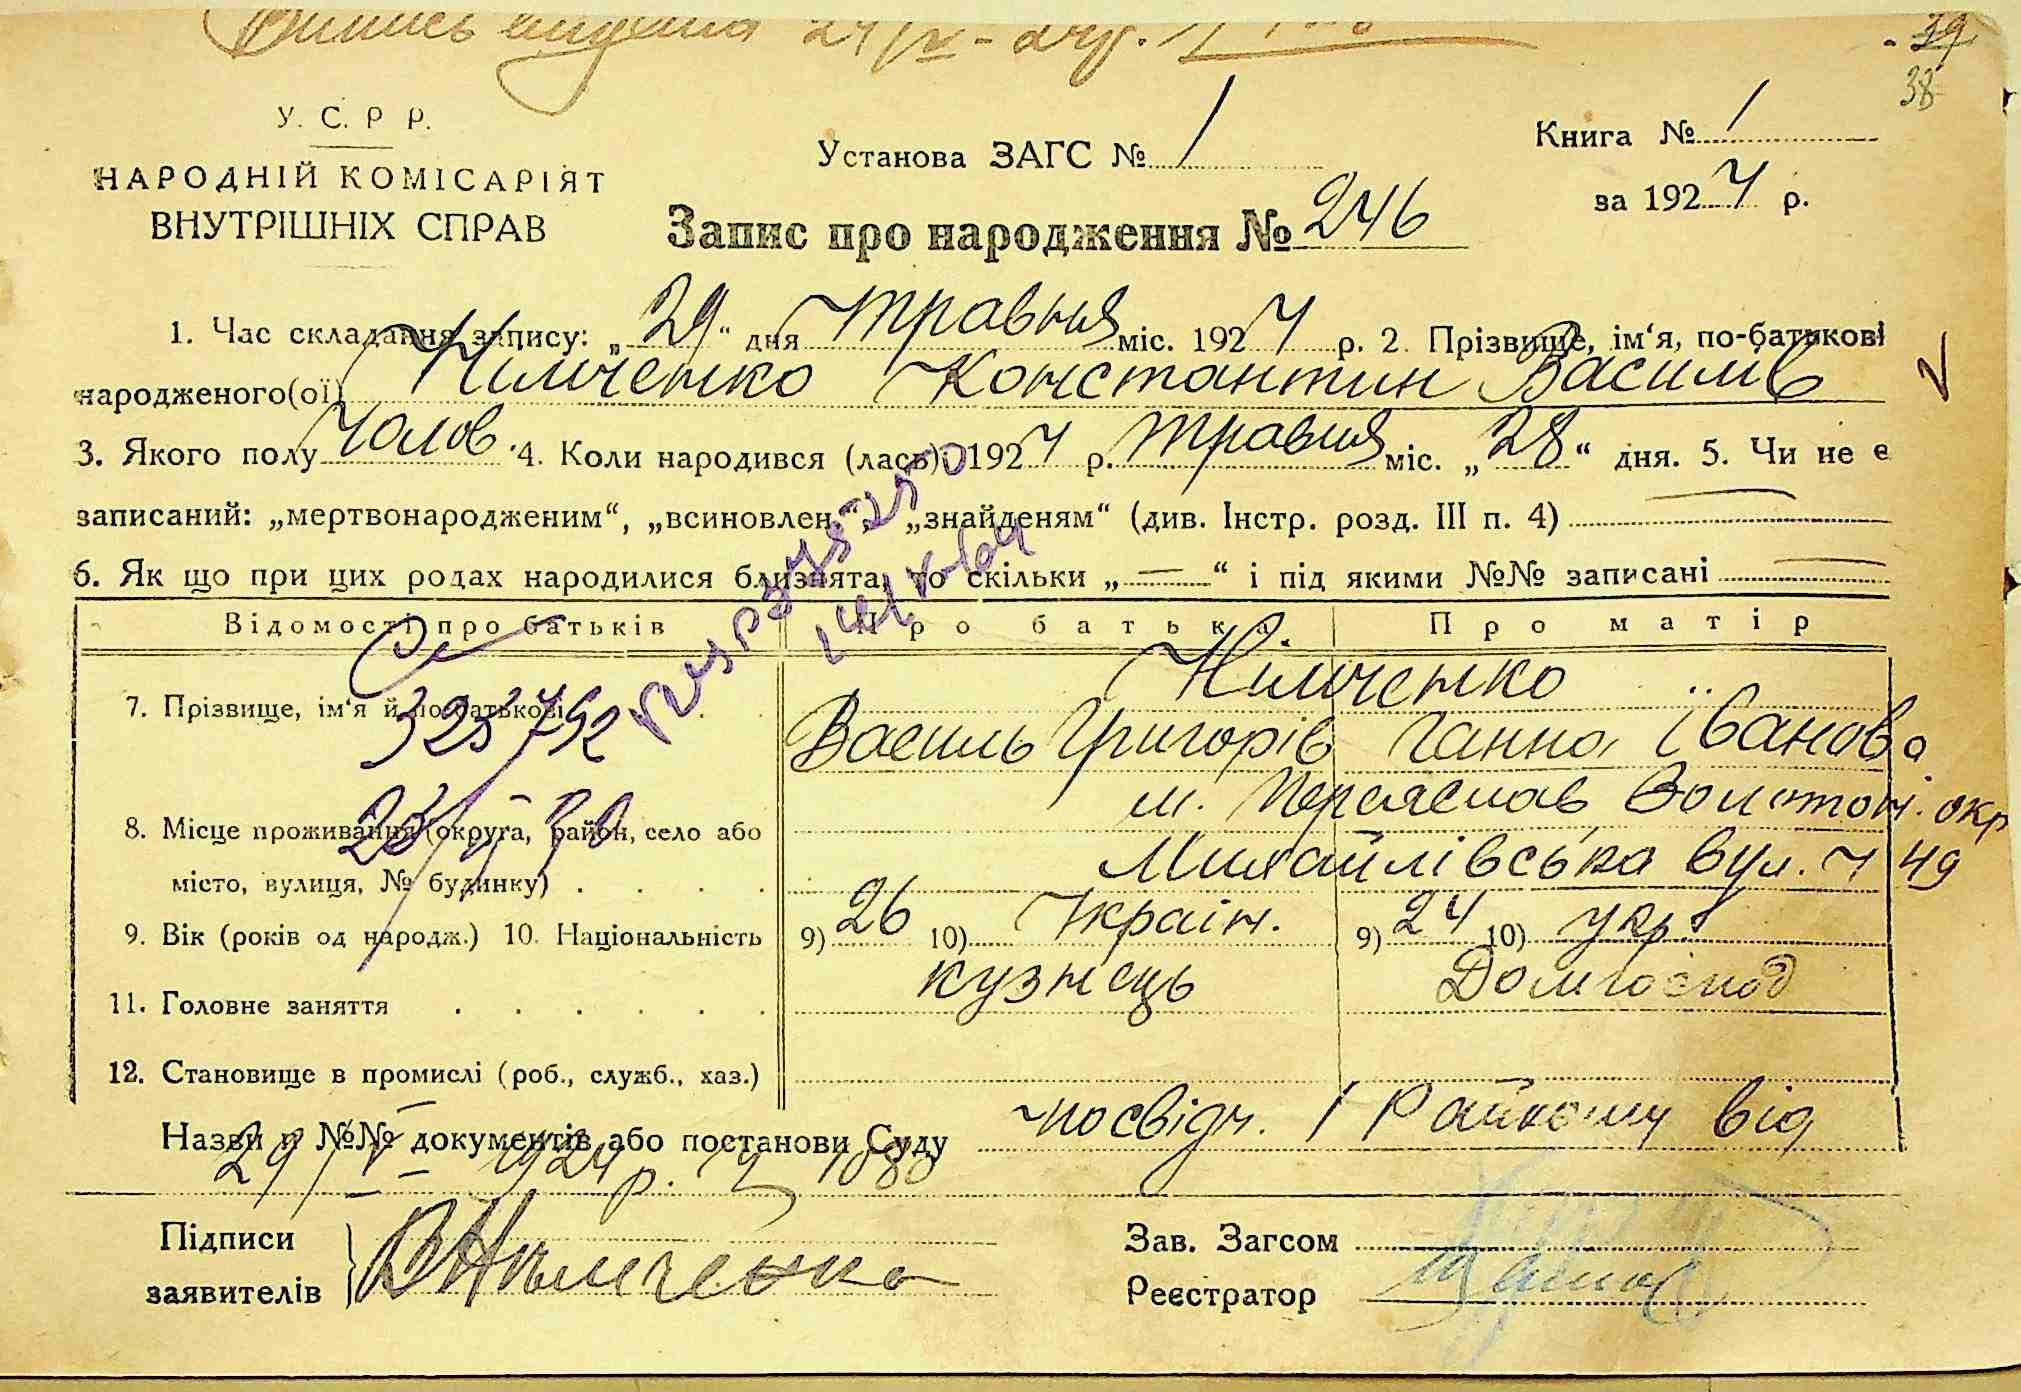 39
38
У. С. Р Р.
НАРОДНІЙ КОМІСАРІЯТ
ВНУТРІШНІХ СПРАВ
Установа ЗАГС № 1
Книга № 1
за 1924 р.
Запис про народження № 246
1. Час складання запису: „29“ дня травня міс. 1924 р. 2. Прізвище, ім‘я, по-батькові
народженого(ої) Німченко Константин Василів
3. Якого полу чолов. 4. Коли народився (лась) 1924 р. травня міс. „28“ дня. 5. Чи не є
записаний: „мертвонародженим“, „всиновлен.“, „знайденям“ (див. Інстр. розд. III п. 4)
6. Як що при цих родах народилися близнята, то скільки „—“ і під якими №№ записані
Відомості про батьків Про батька Про матір
7. Прізвище, ім‘я й по-батькові
Німченко
Василь Григорів Ганна Іванова
323752
8. Місце проживання (округа, район, село або
місто, вулиця, № будинку)
м. Переяслав Золотон. окр
Михайлівська вул. ч 49
9. Вік (років од народж.) 10. Національність 9) 26 10) Україн. 9) 24 10) укр.
11. Головне заняття кузнець Домгоспод
12. Становище в промислі (роб., служб., хаз.)
Назви и №№ документів або постанови Суду посвідч. 1 Райкому від
29/V–1924 р. ч 1080
Підписи
заявителів
В Німченко
Зав. Загсом
Реєстратор